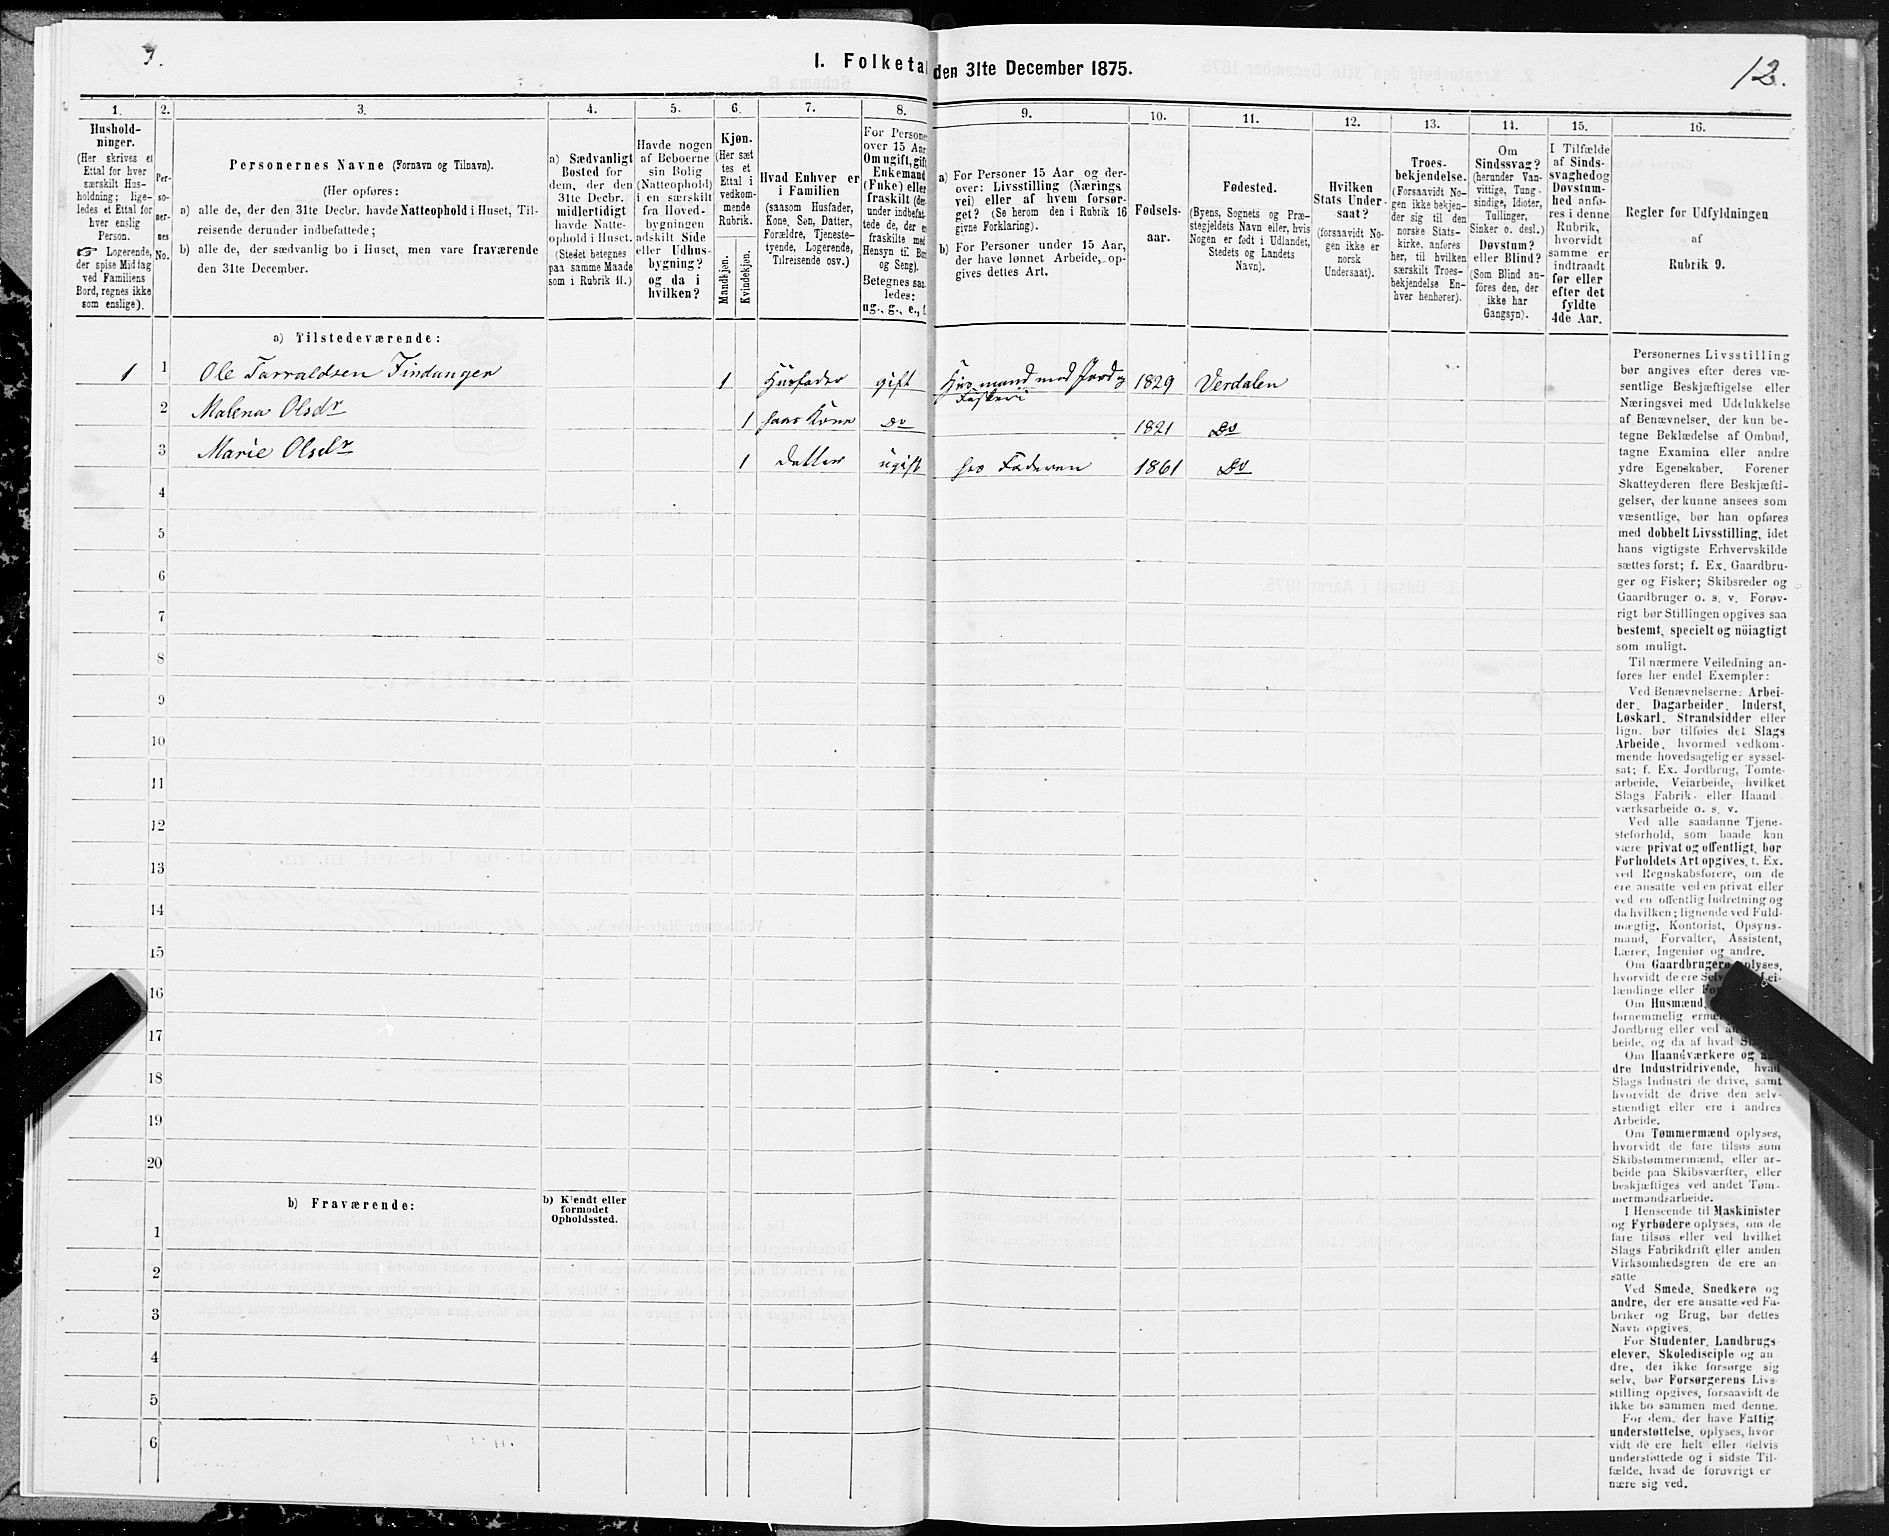 3.
I. Folketal den 31te December 1875.
12.
1.
2.
3.
4.
5.
6.
7.
8.
9.
10.
11.
12.
13.
14.
15.
16.
Hushold-
ninger.
(Her skrives et
Ettal for hver
særskilt Hus-
holdning; lige-
ledes et Ettal for
hver enslig
Person.
☞ Logerende,
der spise Middag
ved Familiens
Bord, regnes ikke
som enslige).
Per-
so-
ner-
nes
No.
Personernes Navne (Fornavn og Tilnavn).
(Her opføres:
a) alle de, der den 31te Decbr. havde Natteophold i Huset, Til-
reisende derunder indbefattede;
b) alle de, der sædvanlig bo i Huset, men vare fraværende
den 31te December.
a) Sædvanligt
Bosted for
dem, der den
31te Decbr.
midlertidigt
havde Natte-
ophold i Huset.
(Stedet betegnes
paa samme Maade
som i Rubrik 11.)
Havde nogen
af Beboerne
sin Bolig
(Natteophold)
i en særskilt
fra Hoved-
bygningen
adskilt Side
eller Udhus-
bygning?
og da i
hvilken?
Kjøn.
(Her sæt
tes et
Ettal i
vedkom-
mende
Rubrik.
Mandkjøn.
Kvindekjøn.
Hvad Enhver er
i Familien
(saasom Husfader,
Kone, Søn, Datter,
Forældre, Tjeneste-
tyende, Logerende,
Tilreisende osv.)
For Persone
over 15 Aar
Om ugift, gift
Enkemand
(Enke) eller
fraskilt (der-
under indbefat-
tede de, der e
fraskilte med
Hensyn til Bo
og Seng).
Betegnes saa-
ledes:
ug., g., e., f.
a) For Personer 15 Aar og der-
over: Livsstilling (Nærings
vei) eller af hvem forsør-
get? (Se herom den i Rubrik 16
givne Forklaring).
b) For Personer under 15 Aar,
der have lønnet Arbeide, op-
gives dettes Art.
Fødsels-
aar.
Fødested.
(Byens, Sognets og Præ-
stegjeldets Navn eller, hvis
Nogen er født i Udlandet,
Stedets og Landets
Navn).
Hvilken
Stats Under-
saat?
(forsaavidt No-
gen ikke er
norsk
Undersaat).
Troes-
bekjendelse.
(Forsaavidt No-
gen ikke bekjen-
der sig til den
norske Stats-
kirke, anføres
her, til hvilken
særskilt Troes-
bekjendelse En-
hver henhører).
Om
Sindssvag?
(herunder Van-
vittige, Tung-
sindige, Idioter,
Tullinger,
Sinker o. desl.)
Døvstum?
eller Blind?
(Som Blind an-
føres den, der
ikke har
Gangsyn).
I Tilfælde
af Sinds-
svaghed og
Døvstum-
hed anfø-
res i denne
Rubrik,
hvorvidt
samme er
indtraadt
før eller
efter det
fyldte
4de Aar.
Regler for Udfyldningen
af
Rubrik 9.
a) Tilstedeværende:
1 1 Ole Tarraldsen Findanger 1 Husfader gift Husmand med Jord og Fiskeri 1829 Verdalen
2 Malena Olsdr 1 hans Kone Do 1821 Do
3 Marie Olsdr 1 datter ugift hos Faderen 1861 Do
4
5
6
7
8
9
10
11
12
13
14
15
16
17
18
19
20
b) Fraværende:
b) Kjendt eller
formodet
Opholdssted.
1
2
3
4
5
6
Personernes Livsstilling
bør angives efter deres væ-
sentlige Beskjæftigelse eller
Næringsvei med Udelukkelse
af Benævnelser, der kun be-
tegne Beklædelse af Ombud,
tagne Examina eller andre
ydre Egenskaber. Forener
Skatteyderen flere Beskjæfti-
gelser, der kunne ansees som
væsentlige, bør han opføres
med dobbelt Livsstilling, idet
hans vigtigste Erhvervskilde
sættes først; f. Ex. Gaardbru-
ger og Fisker; Skibsreder og
Gaardbruger o. s. v. Forøv-
rigt bør Stillingen opgives saa
bestemt, specielt og nöiagtigt
som muligt.
Til nærmere Veiledning an-
føres her endel Exempler:
Ved Benævnelserne: Arbei-
der, Dagarbeider, Inderst,
Løskarl, Strandsidder eller
lign. bør tilføies det Slags
Arbeide, hvormed vedkom-
mende hovedsagelig er syssel-
sat; f. Ex. Jordbrug, Tomte-
arbeide, Veiarbeide, hvilket
Slags Fabrik- eller Haand-
værksarbeide o. s. v.
Ved alle saadanne Tjene-
steforhold, som baade kan
være privat og offentligt, bør
Forholdets Art opgives, t. Ex.
ved Regnskabsførere, om de
ere ansatte ved en privat eller
ved en offentlig Indretning og
da hvilken; lignende ved Fuld-
mægtig, Kontorist, Opsyns-
mand, Forvalter, Assistent,
Lærer, Ingeniør og andre.
Om Gaardbrugere oplyses,
hvorvidt de ere Selv
lændinge eller
Om Husmænd,
fornemmelig
Jordbrug eller ved
beide, og da af hvad
Om Haandværkere og an-
dre Industridrivende, hvad
Slags Industri de drive, samt
hvorvidt de drive den selv-
stændigt eller ere i andres
Arbeide.
Om Tømmermænd oplyses,
hvorvidt de fare tilsøs som
Skibstømmermænd, eller ar-
beide paa Skibsværfter, eller
beskjæftiges ved andet Tøm-
mermandsarbeide.
I Henseende til Maskinister
og Fyrbødere oplyses, om de
fare tilsøs eller ved hvilket
Slags Fabrikdrift eller anden
Virksomhedsgren de ere an-
satte
Ved Smede, Snedkere og
andre, der ere ansatte ved Fa-
briker og Brug, bør dettes
Navn opgives.
For Studenter, Landbrugs
elever, Skoledisciple og an-
dre, der ikke forsørge sig
selv, bør Forsørgerens Livs-
stilling opgives, forsaavidt de
ikke bo sammen med denne.
For dem, der have Fattig-
understøttelse, oplyses, hvor
vidt de ere helt eller delvis
understøttede og i sidste Til-
fælde, hvad de forøvrigt er
nære sig ved.